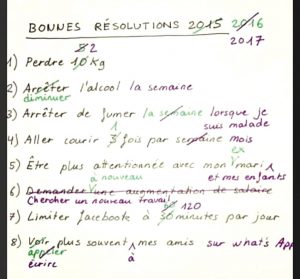 BONNES RÉSOLUTIONS 2015 2016
2017
8 2
1) Perdre 10 Kg
2) Arrêter l'alcool la semaine
diminuer
3) Arrêter de fumer la semaine lorsque je
suis malade
1
4) Aller courir 3 fois par semaine mois
ex
5) Être plus attentionnée avec mon mari
à nouveau et mes enfants
6) Demander une augmentation de salaire
Chercher un nouveau travail
120
7) Limiter facebook à 30 minutes par jour
8) Voir plus souvent mes amis sur what's App
appeler à
écrire